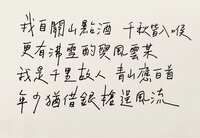 我自關山點酒 千秋皆入喉
更有沸雪酌與風雲某
我是千里故人 青山應白首
年少猶借銀槍逞風流